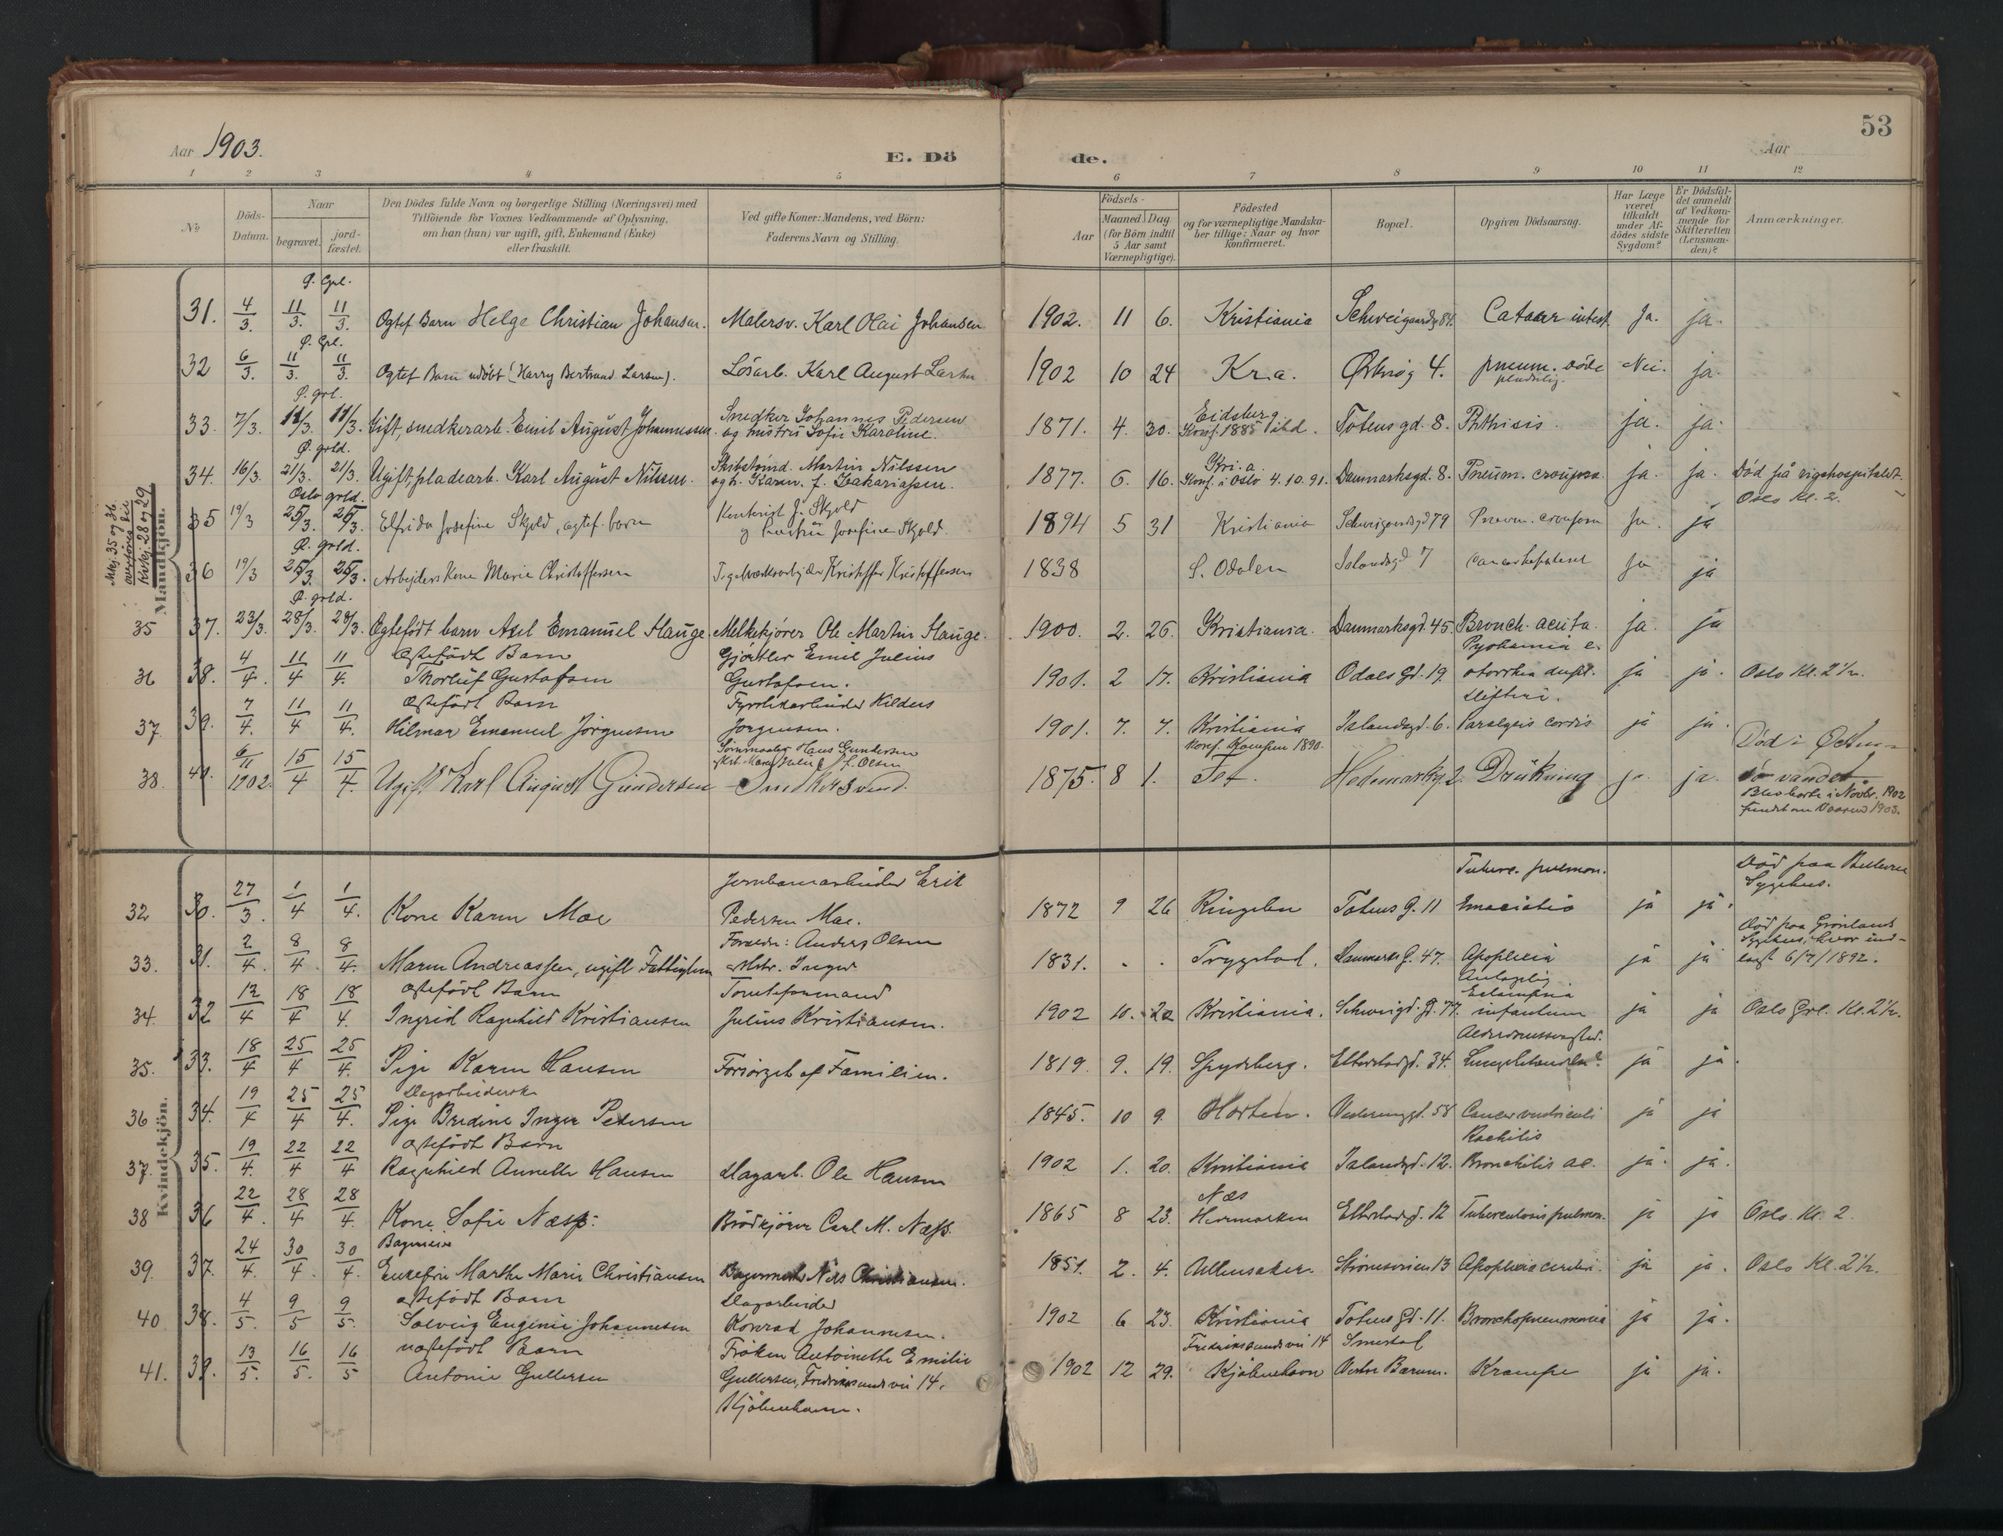 53
Aar 1903.
E. Dö
de.
Aar
1 2 3 4 5 6 7 8 9 10 11 12
No
Döds-
Datum.
Naar
begravet.
jord-
fæstet.
Den Dödes fulde Navn og borgerlige Stilling (Næringsvei) med
Tilföiende for Voxnes Vedkommende af Oplysning,
om han (hun) var ugift, gift, Enkemand (Enke)
eller fraskilt.
Ved gifte Koner: Mandens, ved Börn:
Faderens Navn og Stilling.
Födsels-
Aar
Maaned Dag
(for Börn indtil
5 Aar samt
Værnepligtige).
Födested
og for værnepligtige Mandska-
ber tillige: Naar og hvor
konfirmeret.
Bopæl.
Opgiven Dödsaarsag.
Har Læge
været
tilkaldt
under Af-
dödes sidste
Sygdom?
Er Dödsfal-
det anmeldt
af Vedkom-
mende for
Skifteretten
(Lensman-
den)?
Anmærkninger.
Mandkjön.
Ø. Grl.
31. 4/3. 11/3. 11/3. Ogtef Barn Helge Christian Johansen. Malersv. Karl Olai Johansen 1902. 11 6. Kristiania Schweigaardsg 84. Catarr intest. Ja. ja.
Ø. Grl.
32 6/3. 11/3. 11/3. Ogtef Barn udöbt (Harry Bertrand Larsen). Lösarb. Karl August Larsen 1902 10 24 Kr.a. 4. pneum. döde Nei. ja.
pludselig.
Ø. grl.
Snedker Johannes Pedersen
Eidsberg
33. 7/3. 11/3. 11/3. Gift, snedkerarb. Emil August Johannessen. og hustru Sofie Karoline. 1871. 4. 30. Konf. 1885 ibd. Totensgd. 8. Phthisis. ja. ja.
Ø. grld.
Martin Nilssen
Kri.a.
34. 16/3. 21/3. 21/3. Ugift, pladearb. Karl August Nilssen. og h. Karen f. Zakariassen. 1877. 6. 16. Konf. i Oslo 4.10.91. Danmarksgd. 8. Pneum. crouposa. ja. ja. Död på rigshospitalet
Oslo Kl. 2.
Oslo grld.
Kontorist J. Skjold
35 19/3 25/3. 25/3. Elfrida Josefine Skjold, ogtef barn og hustru Josefine Skjold. 1894 5 31 Kristiania 79 Pneum. crouposa Ja. ja
Ø. grld.
36 19/3 25/3. 25/3. Arbejders Kone Marie Christoffersen Kristoffer Kristoffersen 1838 S. Odalen Islandsgd 7 cancer hepatis Ja ja
Ø. grld.
35 37. 23/3. 28/3. 28/3. Ogtefödt barn Axel Emanuel Hauge. Melkekjörer Ole Martin Hauge. 1900. 2. 26. Kristiania. Danmarksgd. 45. Bronch. acuta. ja. ja
Ægtefödt Barn Gjörtler Emil Julius Pyohæmia e.
36 38. 4/4. 11/4 11/4. Thorleif Gustafsen Gustafsen. 1901. 2 17. Kristiania Odals Gd. 19 ja ja. Oslo Kl. 2 1/2.
Ægtefödt Barn Difteri.
37. 39. 7/4. 11/4 11/4. Hilmar Emanuel Jörgensen Jörgensen. 1901. 7. 7. Kristiania Islandsgd. 6. Paralysis cordis ja ja.
Hans Gundersen
Konf. 1890.
38. 40. 6/11 1902. 15/4 15/4. Ugift Karl August Gundersen Snedkersvend. 1875. 8 1. Fet. Hedemarksg. 2. Drukning ja ja. vandet
Novbr. 1902
1903.
Kvindekjön.
Jernbanearbeider Erik Tuberc. pulmon. Död paa Sygehus.
32 30. 27/3. 1/4 1/4. Kone Karen Moe Pedersen Moe. 1872 9 26 Ringebu Totens G. 11 Emaciatio ja ja.
Forældre: Anders Olsen Död paa Grönlands
Sygehus, hvor ind-
33. 31. 2/4. 8/4. 8/4. Maren Andreassen, ugift Fattiglem Inger 1831. - - Trygstad. Danmarks G. 47. Apoplexia ja ja lagt 6/7/1892.
Antagelig
Ægtefödt Barn Tomteformand Eclampsia
34. 32 12/4 18/4 18/4. Ingrid Ragnhild Kristiansen Julius Kristiansen. 1902 10. 20 Kristiania. 77. infantium ja ja Oslo Grl. Kl. 2 1/2.
35. 33. 18/4 25/4 25/4. Pige Karen Hansen Forsörget af Familien. 1819 9. 19. Spydeberg. 34. ja ja.
36 34. 19/4 25/4 25/4. Pige Bredine Inger Petersen 1845. 10 9. Horten. 58 Cancer ventriculi ja ja
Ægtefödt Barn Rachitis
37. 35. 19/4. 22/4 22/4 Ragnhild Annette Hansen Dagarb. Ole Hansen 1902 1. 20. Kristiania Islandsgd. 12. Bronchitis ac. ja. ja.
Næs
38 36 22/4. 28/4 28/4. Kone Sofie Næss. Brödkjörer Carl M. Næss. 1865 8 23. Hedemarken 12 Tuberculosis pulmon. ja ja Oslo Kl. 2.
39. 37. 24/4. 30/4. 30/4. Enkefru Marthe Marie Christiansen Nils Christiansen. 1851. 2. 4. Ullensaker. 13 Apoplexia cerebri. ja ja. Oslo Kl. 2 1/2.
Ægtefödt Barn Dagarbeider
40 38. 4/5. 9/5 9/5. Solveig Eugenie Johannesen Konrad Johannesen. 1902 6 23. Kristiania Totens Gd. 11. Bronchopneumonia ja ja.
uægtefödt Barn Fröken Antoinette Emilie Fredrikssundsvei 14 Smestad
41. 39. 13/5. 16/5. 16/5 Antonie Gullersen Gullersen, Fredrikssundsvei 14, 1902 12 29. Kjöbenhavn Vestre Bærum. Krampe ja ja.
Kjöbenhavn.